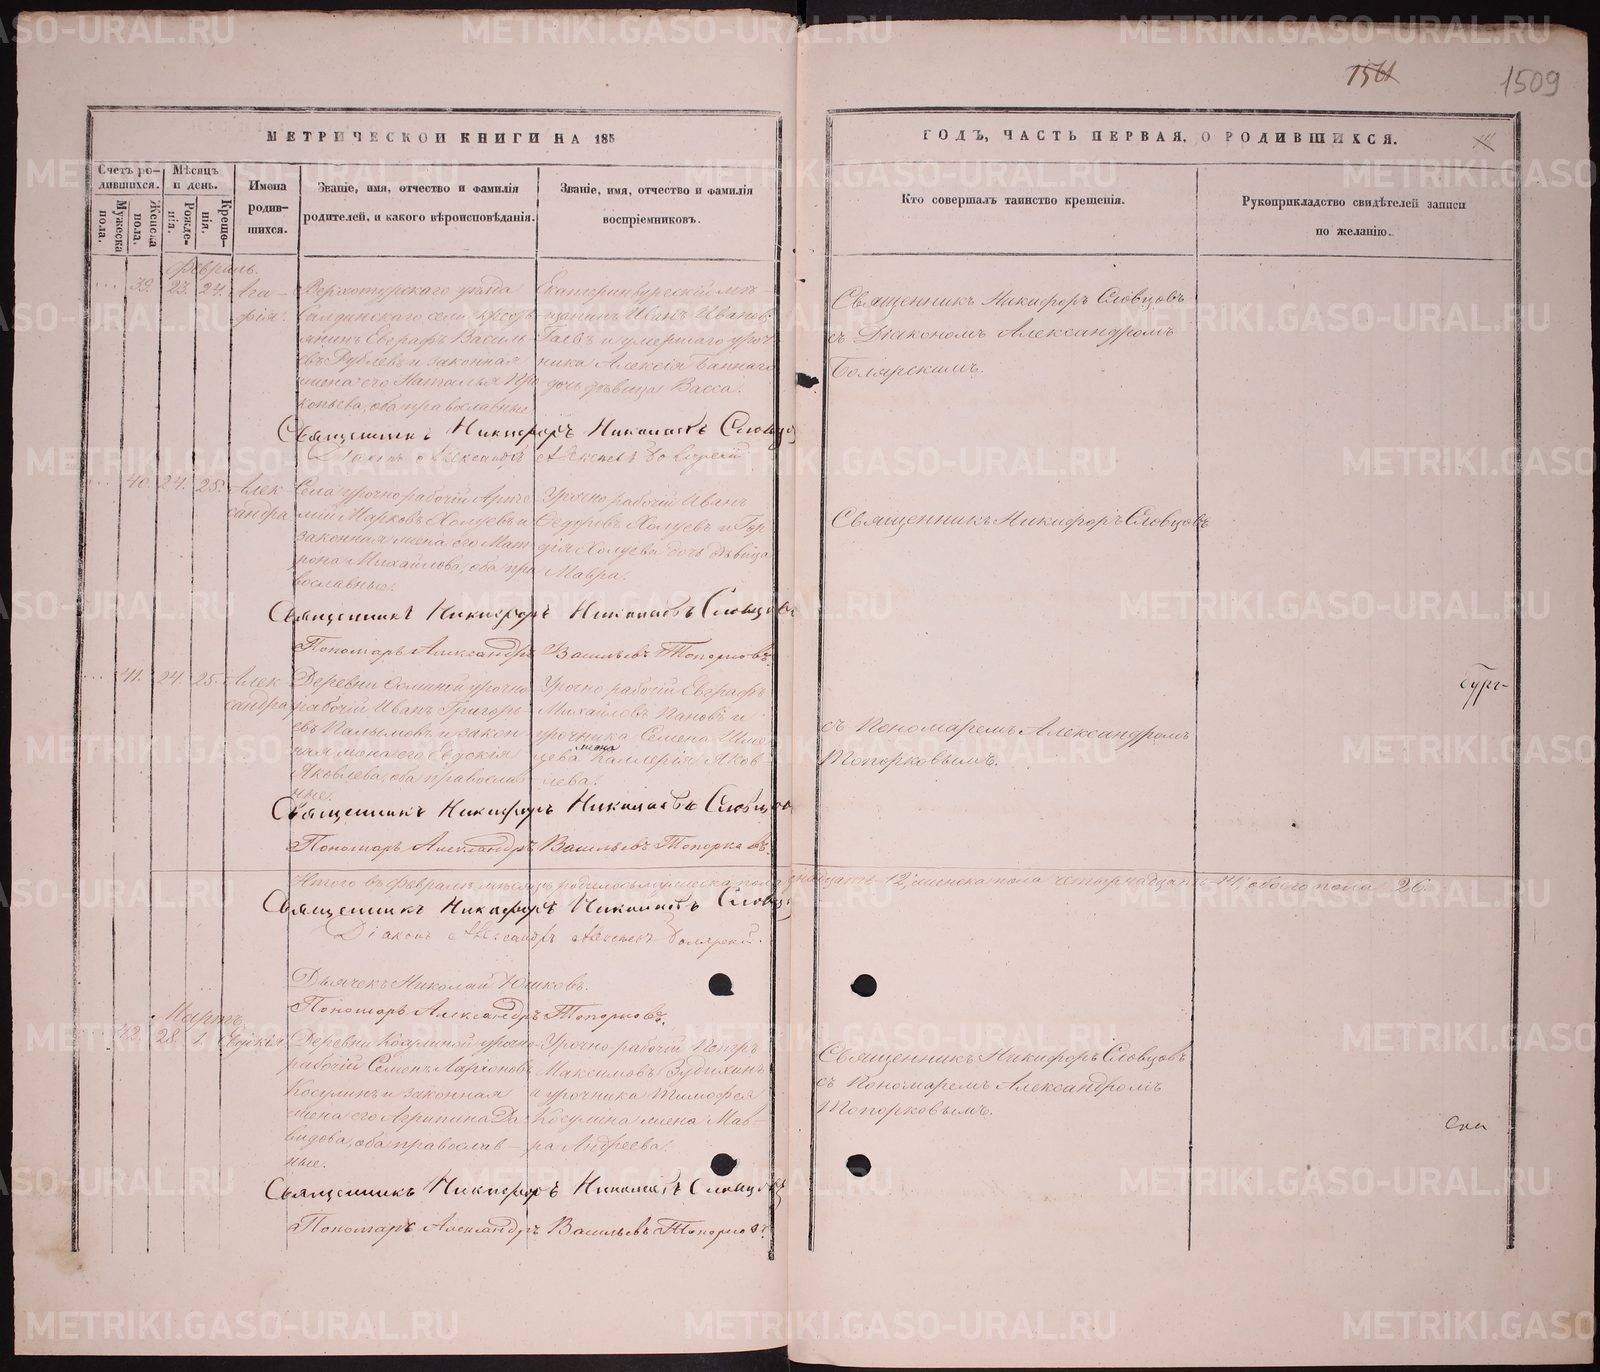 1509
МЕТРИЧЕСКОЙ КНИГИ НА 185
ГОДЪ, ЧАСТЬ ПЕРВАЯ, О РОДИВШИХСЯ.
Счетъ ро-
дившихся.
Мужеска
пола.
Женска
пола.
Мѣсяцъ
и день.
Рожде-
нія.
Креще-
нія.
Имена
родив-
шихся.
Званіе, имя, отчество и фамилія
родителей, и какого вѣроисповѣданія.
Званіе, имя, отчество и фамилія
воспріемниковъ.
Кто совершалъ таинство крещенія.
Рукоприкладство свидѣтелей записи
по желанію.
Февраль.
39. 23. 24. Ага-
фія.
Верхотурскаго уѣзда
салдинскаго села кресть
янинъ Евграфъ Василь-
евъ и законная
жена его Наталья Про
копьева, оба православные.
Екатеринбургскій мѣ-
щанинъ Иванъ Ивановъ
и умершаго уроч
ника Алексія
дочь дѣвица Васса.
Священникъ Никифоръ Словцовъ
съ Діакономъ Александромъ
Болярскимъ.
Священникъ Никифоръ Николаевъ Словцовъ
Діаконъ Александръ Алексѣевъ Болярскій
40. 24. 25. Алек
сандра
Села урочнорабочій Арте
мій Марковъ Холуевъ и
законная жена его Мат
рона Михайлова, оба пра
вославные.
Урочнорабочій Иванъ
Ѳедоровъ Холуевъ и Гор
дія Холуева дочь дѣвица
Мавра.
Священникъ Никифоръ Словцовъ
Священникъ Никифоръ Николаевъ Словцовъ
Пономарь Александръ Васильевъ Топорковъ.
41. 24. 25. Алек
сандра
Деревни урочно
рабочій Иванъ Григорь-
евъ Палымовъ и закон
ная жена его Евдокія
Яковлева, оба православ-
ные.
Урочнорабочій Евграфъ
Михайловъ Пановъ и
урочника Семена
жена
Каллерія Яков-
лева.
съ Пономаремъ Александромъ
Топорковымъ.
Священникъ Никифоръ Николаевъ Словцовъ
Пономарь Александръ Васильевъ Топорковъ.
Итого въ Февралѣ мѣсяцѣ родилось мужеска пола двѣнадцать 12, женска пола четырнадцать 14, обоего пола 26.
Священникъ Никифоръ Николаевъ Словцовъ
Діаконъ Александръ Алексѣевъ Болярскій.
Дьячекъ Николай Юшковъ.
Пономарь Александръ Топорковъ.
Мартъ.
42. 28. 1. Евдокія
Деревни Косулиной урочно
рабочій Семенъ Ларіоновъ
Косулинъ и законная
жена его Агрипина Да-
видова, оба православ-
ные.
Урочнорабочій Петръ
Максимовъ Зудихинъ
и урочника Тимофея
Косулина жена Мав-
ра Андреева.
Священникъ Никифоръ Словцовъ
съ Пономаремъ Александромъ
Топорковымъ.
Священникъ Никифоръ Николаевъ Словцовъ
Пономарь Александръ Васильевъ Топорковъ
METRIKI.GASO-URAL.RU